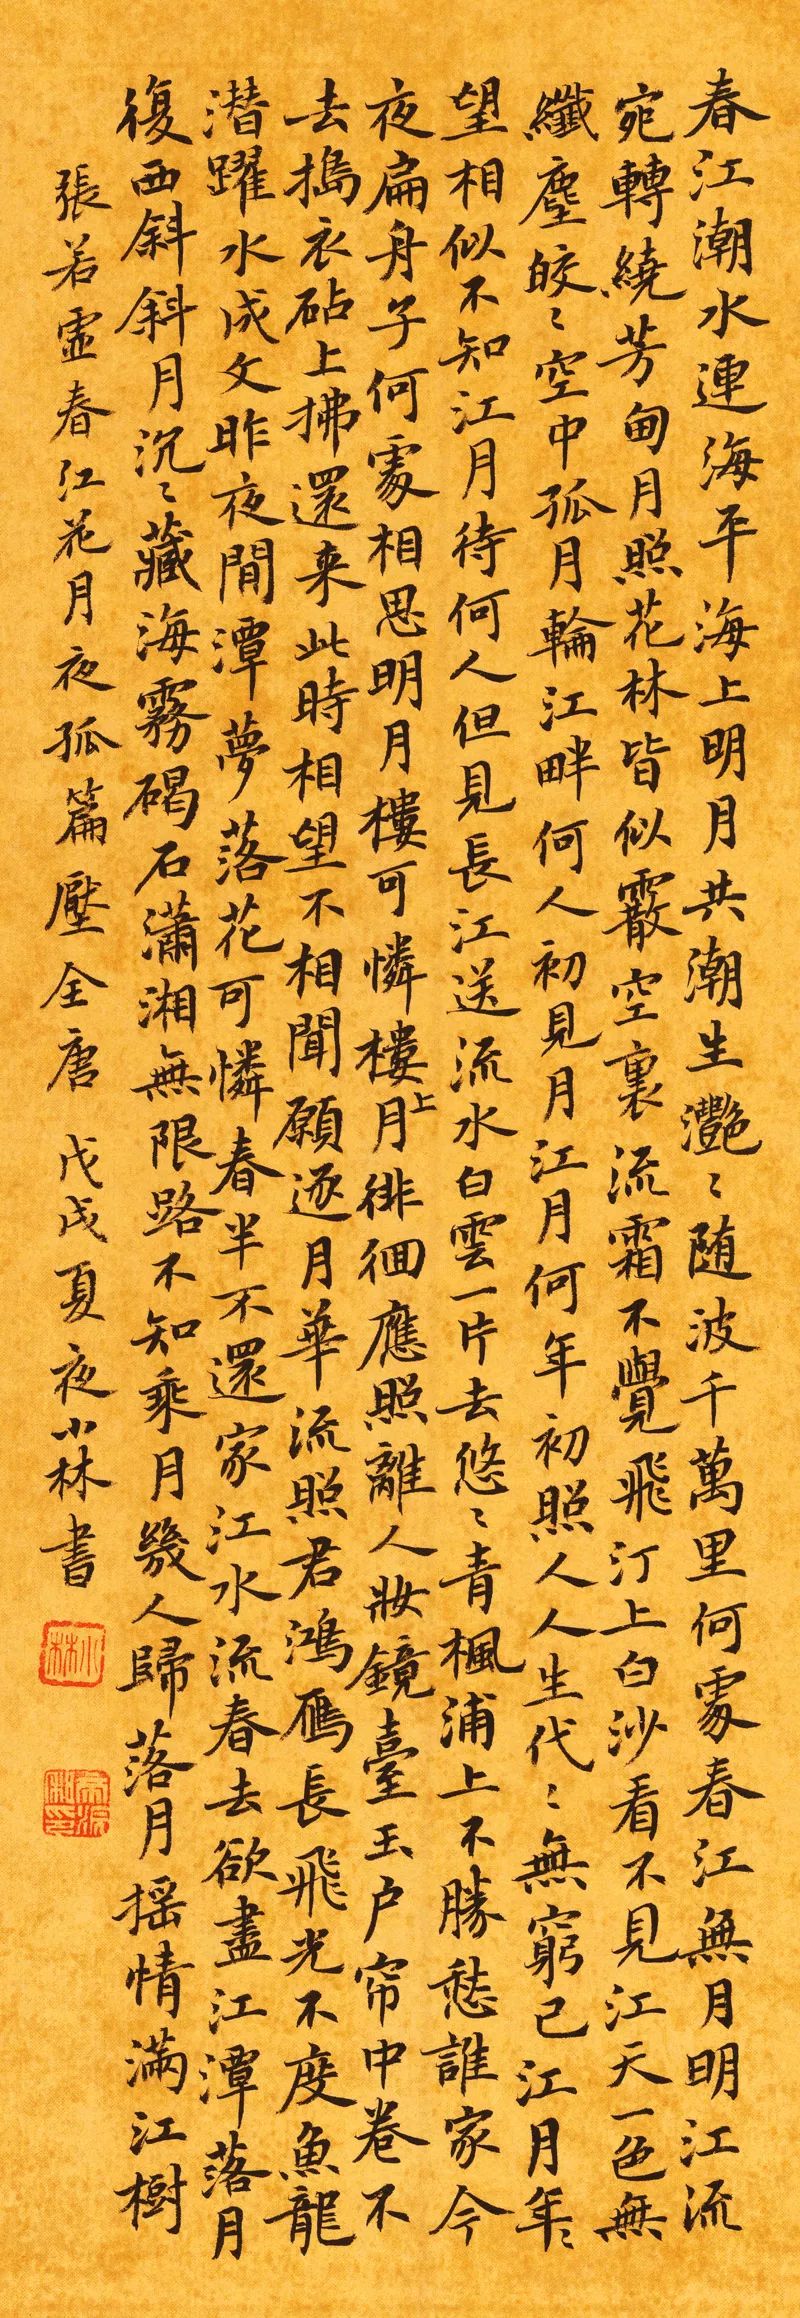 春江潮水連海平海上明月共潮生灧〻随波千萬里何處春江無月明江流
宛轉繞芳甸月照花林皆似霰空裏流霜不覺飛汀上白沙看不見江天一色無
纖塵皎〻空中孤月輪江畔何人初見月江月何年初照人人生代〻無窮已江月年〻
望相似不知江月待何人但見長江送流水白雲一片去悠〻青楓浦上不勝愁誰家今
夜扁舟子何處相思明月樓可憐樓上月徘徊應照離人妝鏡臺玉户帘中卷不
去搗衣砧上拂還来此時相望不相聞願逐月華流照君鴻雁長飛光不度魚龍
潜躍水成文昨夜閒潭夢落花可憐春半不還家江水流春去欲盡江潭落月
復西斜斜月沉〻藏海霧碣石瀟湘無限路不知乘月幾人歸落月揺情滿江樹
張若虛春江花月夜孤篇壓全唐 戊戌夏夜小林書
小林